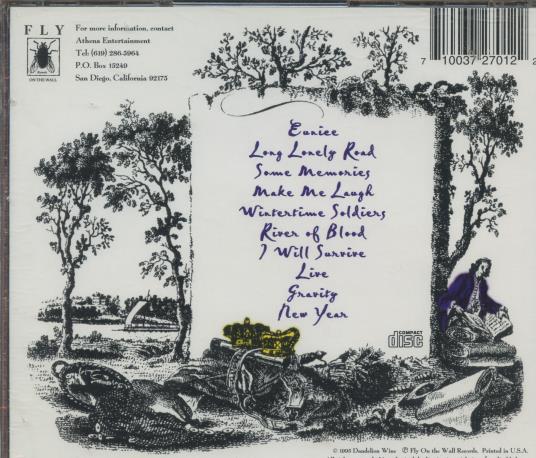 FLY
ON THE WALL
For more information, contact
Athena Entertainment
Tel: (619) 286-5964
P.O. Box 15249
San Diego, California 92175
7 10037 27012 2
Eunice
Long Lonely Road
Some Memories
Make Me Laugh
Wintertime Soldiers
River of Blood
I Will Survive
Live
Gravity
New Year
COMPACT
disc
Dandelion Wine ℗ Fly On the Wall Records. Printed in U.S.A.